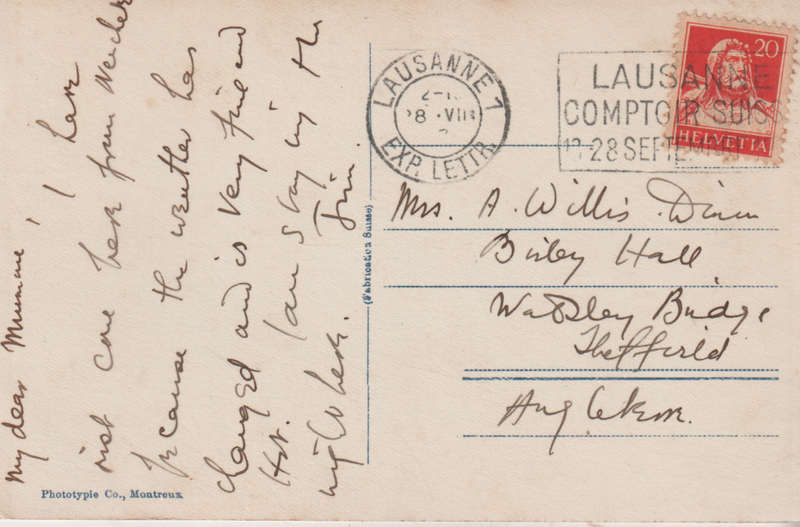 My dear Mummie, I have
just come here from
because the weather has
changed and is very fine and
Hot. I am staying the
night here. Jim.
Phototypie Co., Montreux
(Fabrication Suisse)
LAUSANNE 1
2-1
28.VIII
EXP. LETTR.
LAUSANNE
COMPTOIR SUIS
13-28 SEPTEM
20
HELVETIA
Mrs. A. Willis Dixon
Birley Hall
Wadsley Bridge
Sheffield
Angleterre.